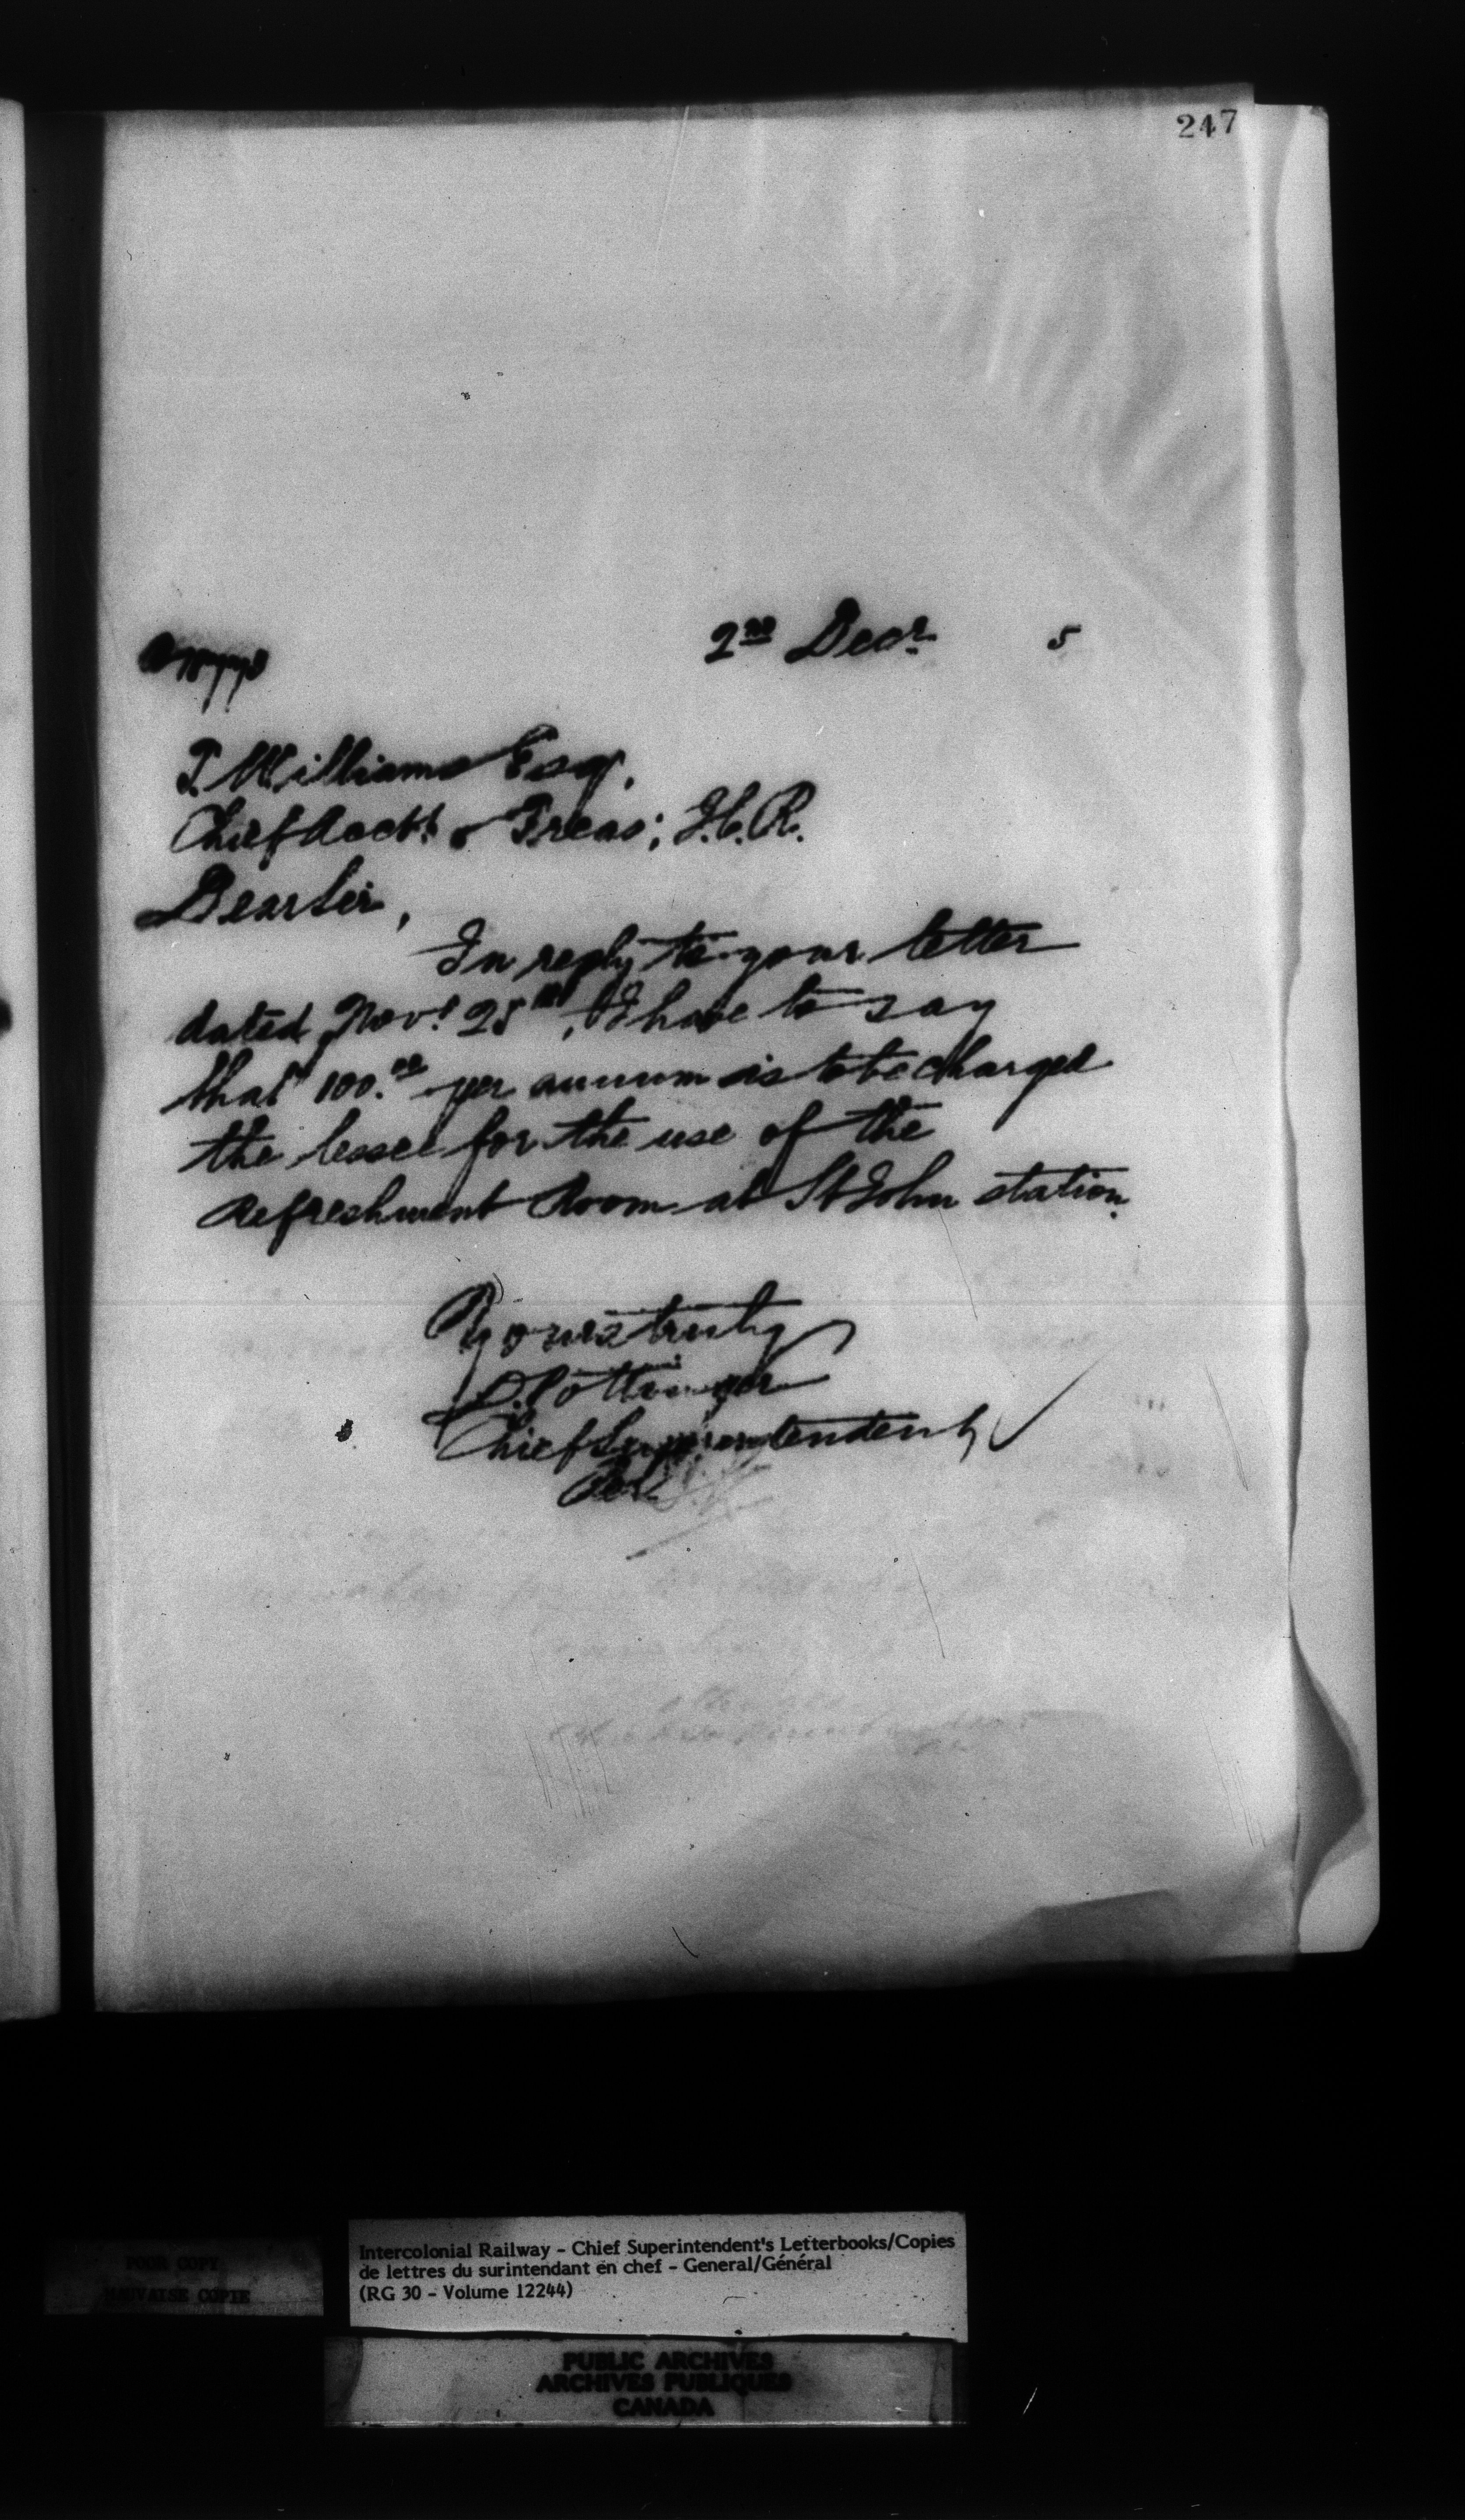 247
2nd Decr. 5
T. Williams Esq.
Chief Acct. & Treas; I.C.R.
Dear Sir,
In reply to your letter
dated Novr 25th, I have to say
that 100.00 per annum is to be charged
the lessee for the use of the
Refreshment Room at St John station.
Yours truly
D. Pottinger
Chief Superintendent
Per
POOR COPY
MAUVAISE COPIE
Intercolonial Railway - Chief Superintendent's Letterbooks/Copies
de lettres du surintendant en chef - General/Général
(RG 30 - Volume 12244)
PUBLIC ARCHIVES
ARCHIVES PUBLIQUES
CANADA